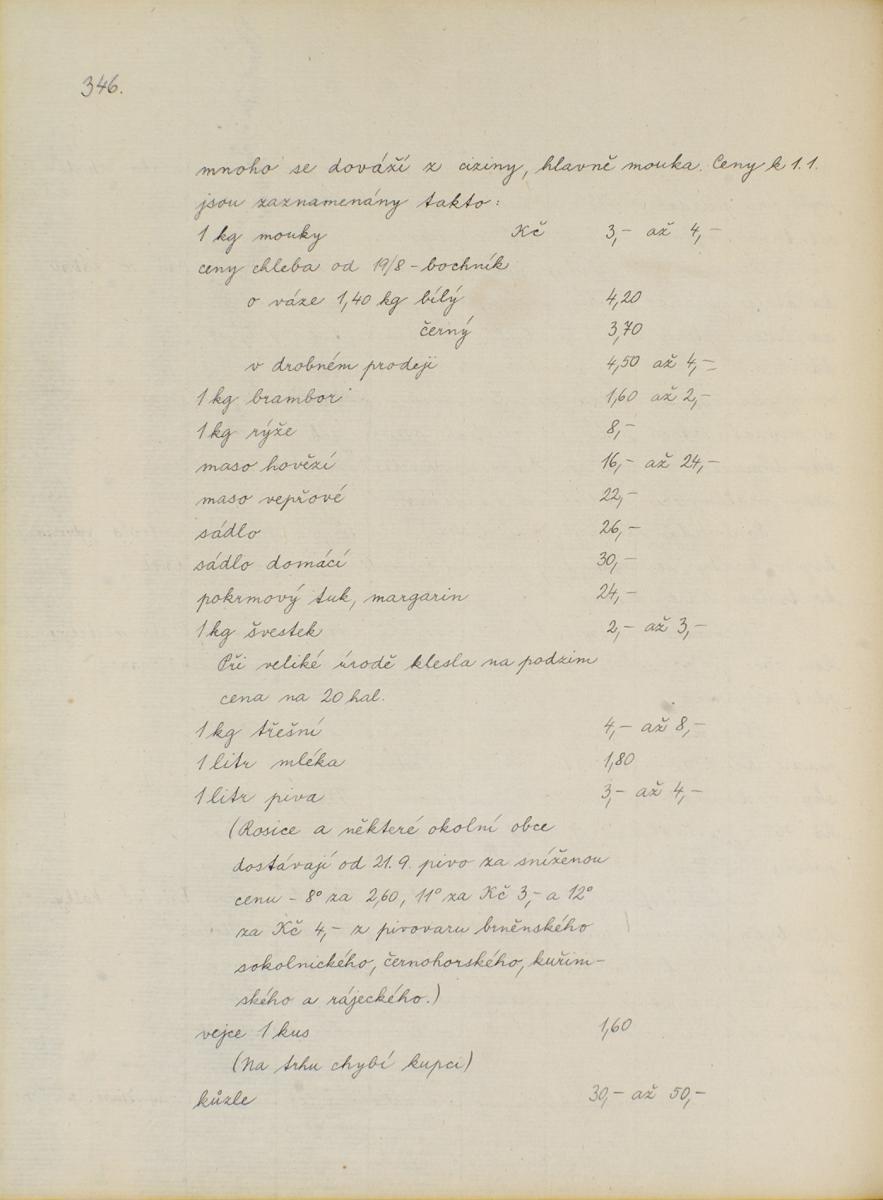 346.
mnoho se dováží z ciziny, hlavně mouka. Ceny k 1.1.
jsou zaznamenány takto:
1 kg mouky Kč 3,- až 4,-
ceny chleba od 19/8 - bochník
o váze 1,40 kg bílý 4,20
černý 3,70
v drobném prodeji 4,50 až 4,-
1 kg brambor 1,60 až 2,-
1 kg rýže 8,-
maso hovězí 16,- až 24,-
maso vepřové 22,-
sádlo 26,-
sádlo domácí 30,-
pokrmový tuk, margarin 24,-
1 kg švestek 2,- až 3,-
Při veliké úrodě klesla na podzim
cena na 20 hal.
1 kg třešní 4,- až 8,-
1 litr mléka 1,80
1 litr piva 3,- až 4,-
(Rosice a některé okolní obce
dostávají od 21.9. pivo za sníženou
cenu - 8° za 2,60, 11° za Kč 3,- a 12°
za Kč 4,- z pivovaru brněnského
sokolnického, černohorského, kuřim-
ského a rájeckého.)
vejce 1 kus 1,60
(Na trhu chybí kupci)
kůzle 30,- až 50,-